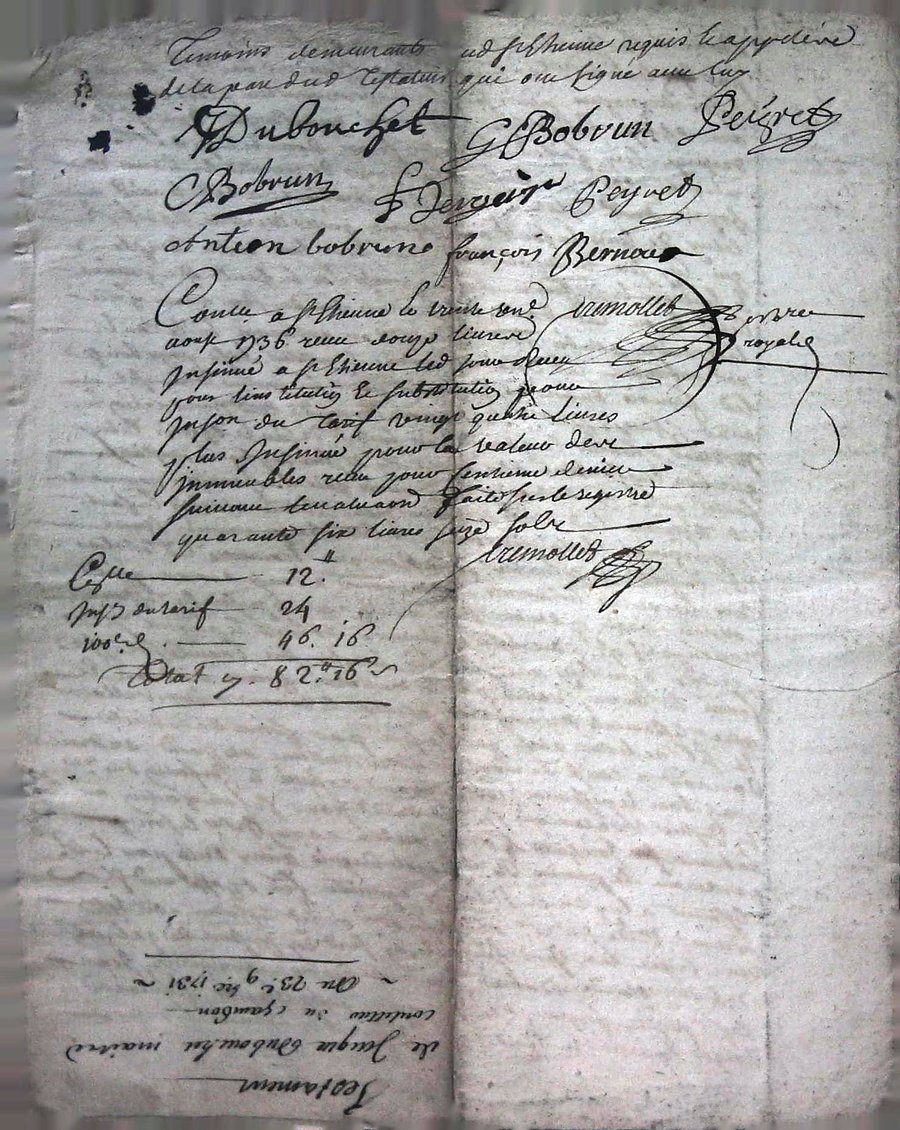 Temoins demeurants aud St Etienne requis & appellés
de la part dud Testateur qui ont signé avec luy
JDubouchet GBobrun Peyret
CBobrun Peyret
Anteon bobrun françois Bernou
Conllé a St Etienne le trente un
aoust 1736 receu douze livres
Insinué a St Etienne led jour Receu
pour linstitution & substitution
du Tarif vingt quatre livres
plus Insinué pour la valeur des
immeubles receu pour centieme denier
suivant faite sur le registre
quarante six livres seize sols
tremollet
notaire
royal
tremollet
Conlle 12.#
Ins du tarif 24
100e d. 46. 16
Total 82.# 16s
Testament
de Jaques Dubouchet maitre
coutelier du chambon
Du 23e 9bre 1731